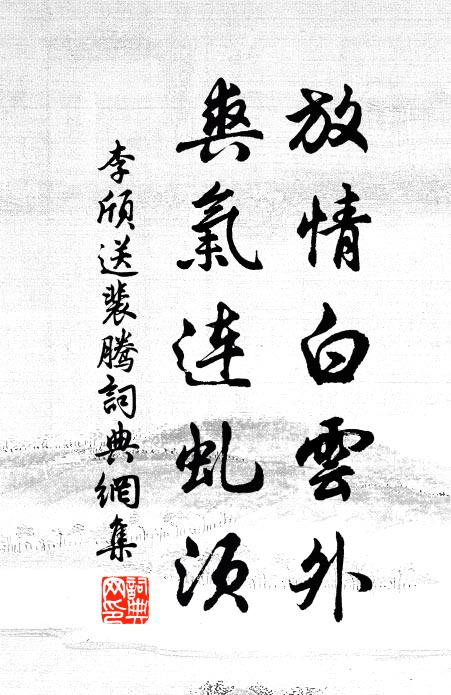 放情白雲外
爽氣連虬須
李頎送裴騰詞典網集
詞典
网印